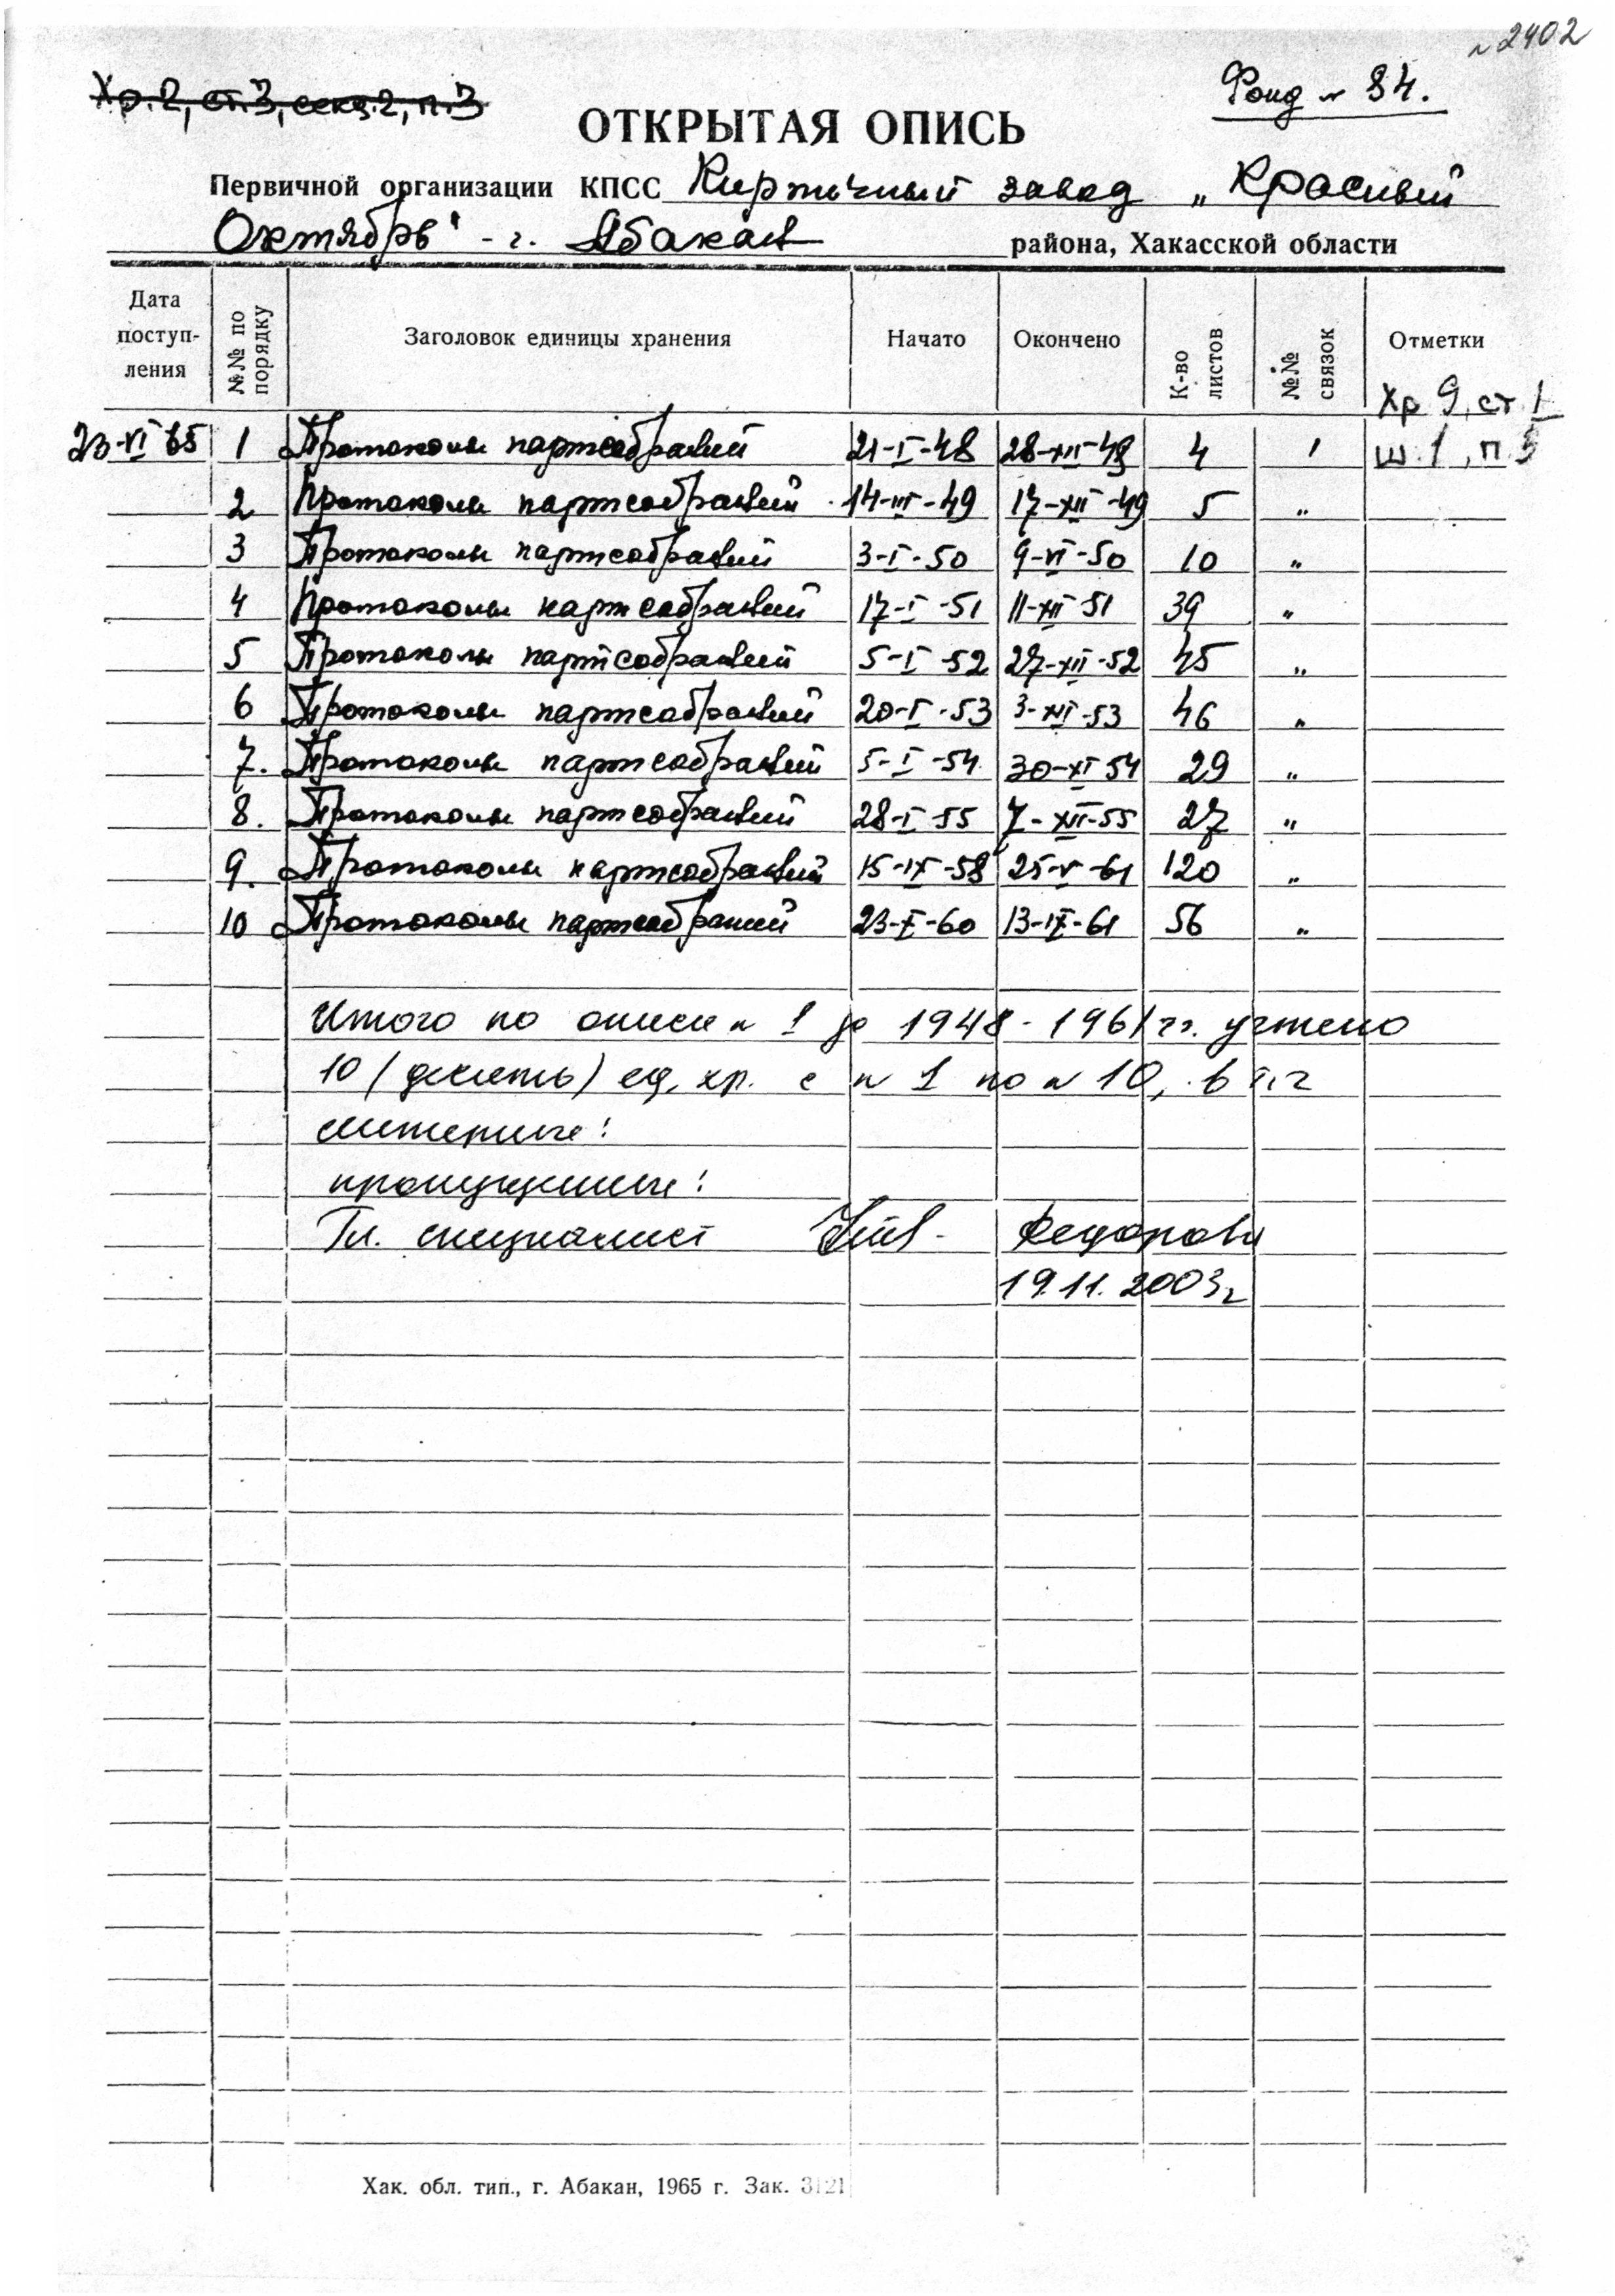 № 2402
Хр. 2, ст. 3, секц. 2, п. 3
Фонд № 84.
ОТКРЫТАЯ ОПИСЬ
Первичной организации КПСС Кирпичный завод „Красный
Октябрь" - г. Абакан района, Хакасской области
Дата поступ-ления №№ по порядку Заголовок единицы хранения Начато Окончено К-во листов №№ связок Отметки
Хр 9, ст. 1
23-VI 65 1 Протоколы партсобраний 21-I-48 28-XII-48 4 1 ш. 1, п. 5
2 Протоколы партсобраний 14-III-49 17-XII-49 5 „
3 Протоколы партсобраний 3-I-50 9-VI-50 10 „
4 Протоколы партсобраний 17-I-51 11-XII 51 39 „
5 Протоколы партсобраний 5-I-52 27-XII-52 45 „
6 Протоколы партсобраний 20-I-53 3-XII-53 46 „
7. Протоколы партсобраний 5-I-54 30-XI 54 29 „
8. Протоколы партсобраний 28-I-55 7-XII-55 27 „
9. Протоколы партсобраний 15-IX-58 25-V-61 120 „
10 Протоколы партсобраний 23-X-60 13-IX-61 56 „
Итого по описи № 1 до 1948-1961 гг. учтено
10 (десять) ед. хр. с № 1 по № 10, в т.ч
литерные:
пропущенные:
Гл. специалист Федорова
19.11.2003г
Хак. обл. тип., г. Абакан, 1965 г. Зак. 3121